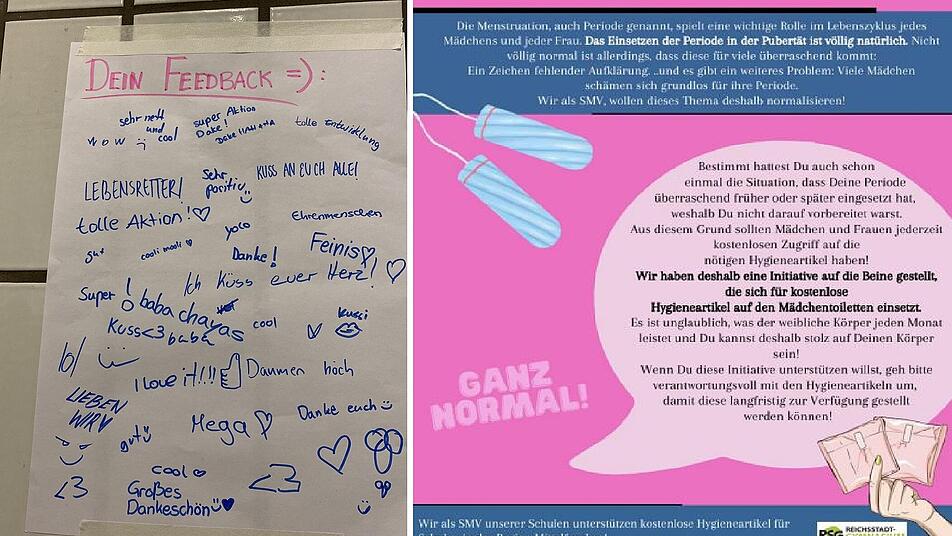 DEIN FEEDBACK =):
sehr nett
und
cool
super Aktion
Dake!
tolle Entwicklung
WOW
LEBENSRETTER!
Sehr
positiv
KUSS AN EUCH ALLE!
tolle Aktion!
Ehrenmenschen
yolo
gut
cooli mooli
Danke!
Feinis
Ich küss euer Herz!
Super!
baba chayas
Kuss<3 baba
cool
Kussi
I love it!!!
Daumen hoch
LIEBEN
WIR
gut
Mega
Danke euch
cool
<3
Großes
Dankeschön
<3
Die Menstruation, auch Periode genannt, spielt eine wichtige Rolle im Lebenszyklus jedes
Mädchens und jeder Frau. Das Einsetzen der Periode in der Pubertät ist völlig natürlich. Nicht
völlig normal ist allerdings, dass diese für viele überraschend kommt:
Ein Zeichen fehlender Aufklärung. ..und es gibt ein weiteres Problem: Viele Mädchen
schämen sich grundlos für ihre Periode.
Wir als SMV, wollen dieses Thema deshalb normalisieren!
Bestimmt hattest Du auch schon
einmal die Situation, dass Deine Periode
überraschend früher oder später eingesetzt hat,
weshalb Du nicht darauf vorbereitet warst.
Aus diesem Grund sollten Mädchen und Frauen jederzeit
kostenlosen Zugriff auf die
nötigen Hygieneartikel haben!
Wir haben deshalb eine Initiative auf die Beine gestellt,
die sich für kostenlose
Hygieneartikel auf den Mädchentoiletten einsetzt.
Es ist unglaublich, was der weibliche Körper jeden Monat
leistet und Du kannst deshalb stolz auf Deinen Körper
sein!
Wenn Du diese Initiative unterstützen willst, geh bitte
verantwortungsvoll mit den Hygieneartikeln um,
damit diese langfristig zur Verfügung gestellt
werden können!
GANZ
NORMAL!
Wir als SMV unserer Schulen unterstützen kostenlose Hygieneartikel für
RSG REICHSSTADT-